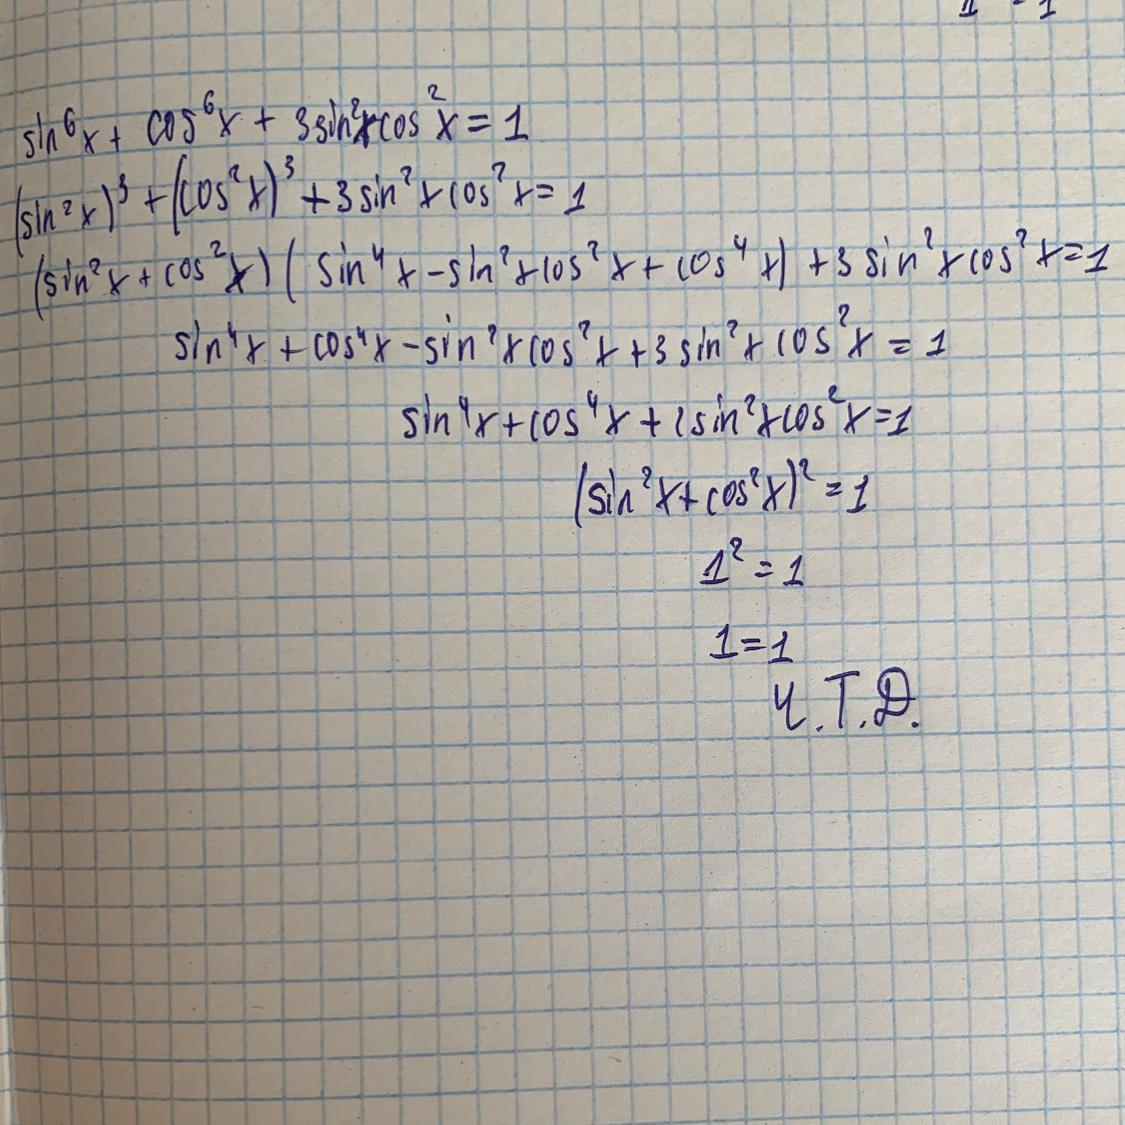 1 = 1
sin⁶x + cos⁶x + 3sin²xcos²x = 1
(sin²x)³ + (cos²x)³ + 3sin²xcos²x = 1
(sin²x + cos²x)(sin⁴x - sin²xcos²x + cos⁴x) + 3sin²xcos²x = 1
sin⁴x + cos⁴x - sin²xcos²x + 3sin²xcos²x = 1
sin⁴x + cos⁴x + 2sin²xcos²x = 1
(sin²x + cos²x)² = 1
1² = 1
1 = 1
Ч.Т.Д.